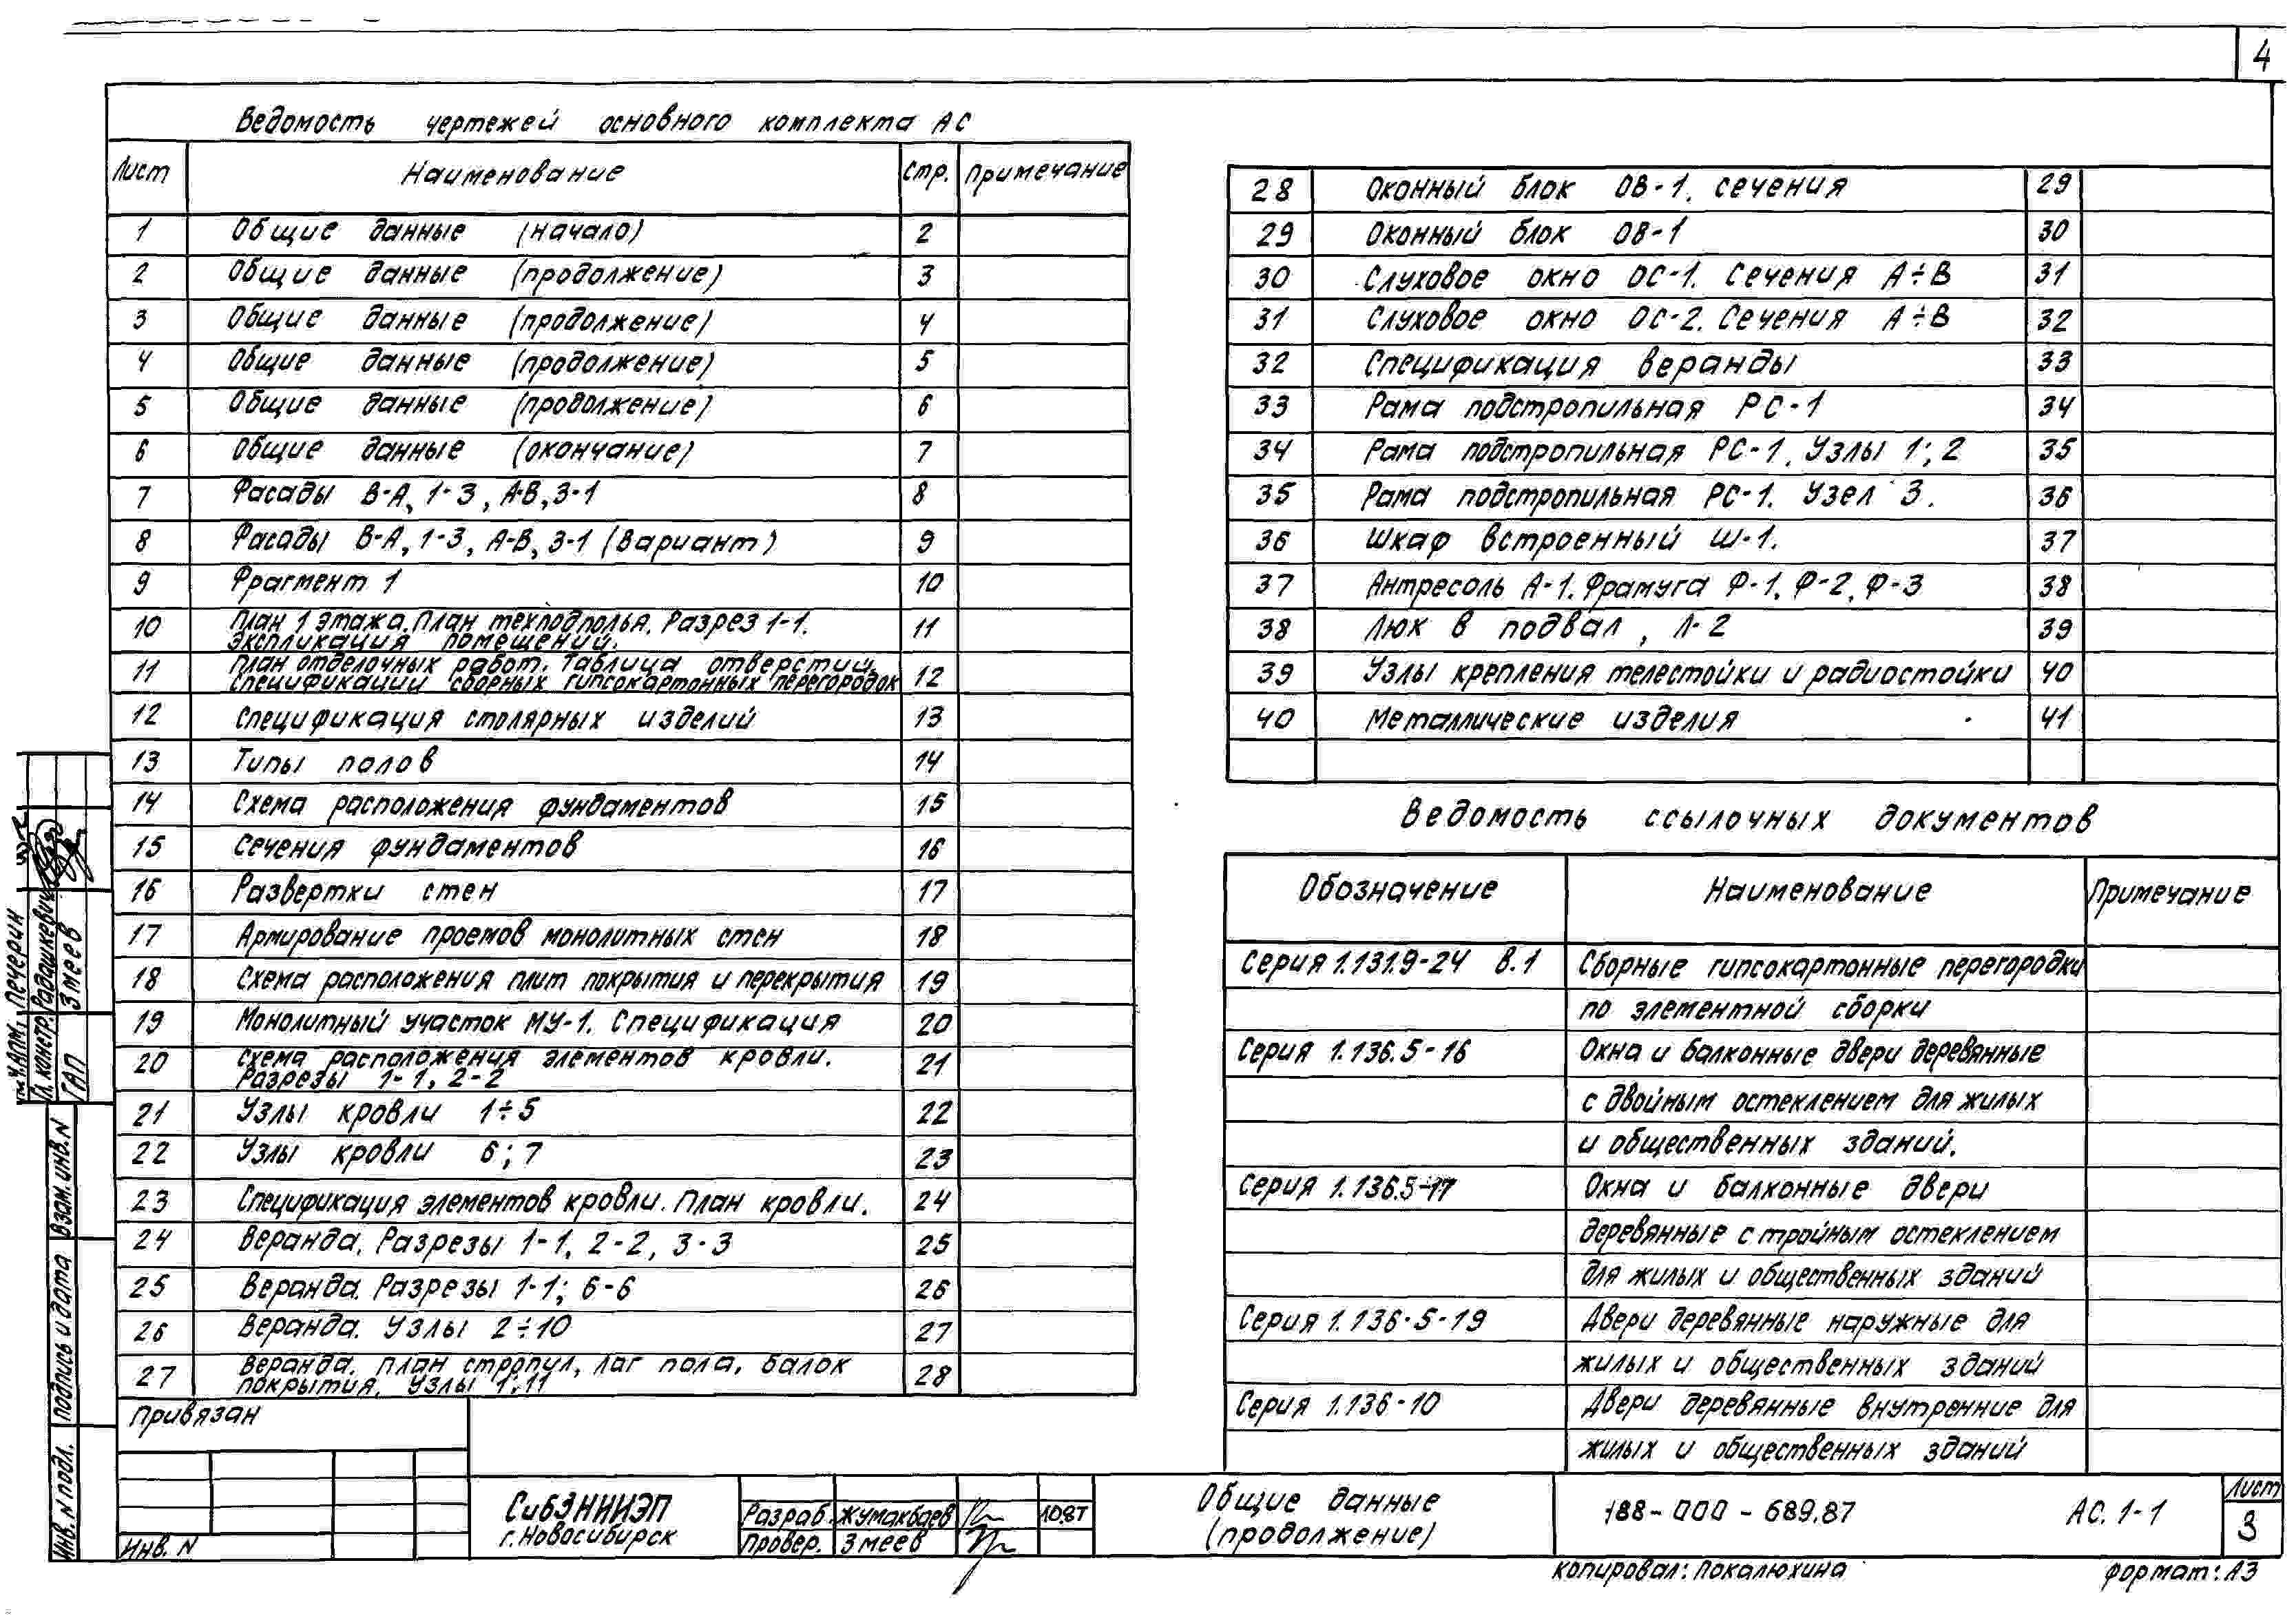 4
Ведомость чертежей основного комплекта АС
Лист Наименование Стр. Примечание
1 Общие данные (начало) 2
2 Общие данные (продолжение) 3
3 Общие данные (продолжение) 4
4 Общие данные (продолжение) 5
5 Общие данные (продолжение) 6
6 Общие данные (окончание) 7
7 Фасады В-А, 1-3, А-В, 3-1 8
8 Фасады В-А, 1-3, А-В, 3-1 (вариант) 9
9 Фрагмент 1 10
10 План 1 этажа. План техподполья. Разрез 1-1. 11
Экспликация помещений.
11 План отделочных работ. Таблица отверстий. 12
Спецификации сборных гипсокартонных перегородок
12 Спецификация столярных изделий 13
13 Типы полов 14
14 Схема расположения фундаментов 15
15 Сечения фундаментов 16
16 Развертки стен 17
17 Армирование проемов монолитных стен 18
18 Схема расположения плит покрытия и перекрытия 19
19 Монолитный участок МУ-1. Спецификация 20
20 Схема расположения элементов кровли. 21
Разрезы 1-1, 2-2
21 Узлы кровли 1÷5 22
22 Узлы кровли 6; 7 23
23 Спецификация элементов кровли. План кровли. 24
24 Веранда. Разрезы 1-1, 2-2, 3-3 25
25 Веранда. Разрезы 1-1; 6-6 26
26 Веранда. Узлы 2÷10 27
27 Веранда. План стропил, лаг пола, балок 28
покрытия. Узлы 1; 11
28 Оконный блок ОВ-1. сечения 29
29 Оконный блок ОВ-1 30
30 Слуховое окно ОС-1. Сечения А÷В 31
31 Слуховое окно ОС-2. Сечения А÷В 32
32 Спецификация веранды 33
33 Рама подстропильная РС-1 34
34 Рама подстропильная РС-1. Узлы 1; 2 35
35 Рама подстропильная РС-1. Узел 3. 36
36 Шкаф встроенный Ш-1. 37
37 Антресоль А-1. Фрамуга Ф-1, Ф-2, Ф-3 38
38 Люк в подвал, Л-2 39
39 Узлы крепления телестойки и радиостойки 40
40 Металлические изделия 41
Ведомость ссылочных документов
Обозначение Наименование Примечание
Серия 1.131.9-24 в.1 Сборные гипсокартонные перегородки
по элементной сборки
Серия 1.136.5-16 Окна и балконные двери деревянные
с двойным остеклением для жилых
и общественных зданий.
Серия 1.136.5-17 Окна и балконные двери
деревянные с тройным остеклением
для жилых и общественных зданий
Серия 1.136-5-19 Двери деревянные наружные для
жилых и общественных зданий
Серия 1.136-10 Двери деревянные внутренние для
жилых и общественных зданий
Печерин
Гл. констр. Радашкевич
ГАП Змеев
Взам. инв. N
Подпись и дата
Инв. N подл.
Привязан
Инв. N
СибЗНИИЭП
г. Новосибирск
Разраб. Жумакбаев 10.87
Провер. Змеев
Общие данные
(продолжение)
188-000-689.87 АС. 1-1
Лист
3
Копировал: Покалюхина Формат: А3